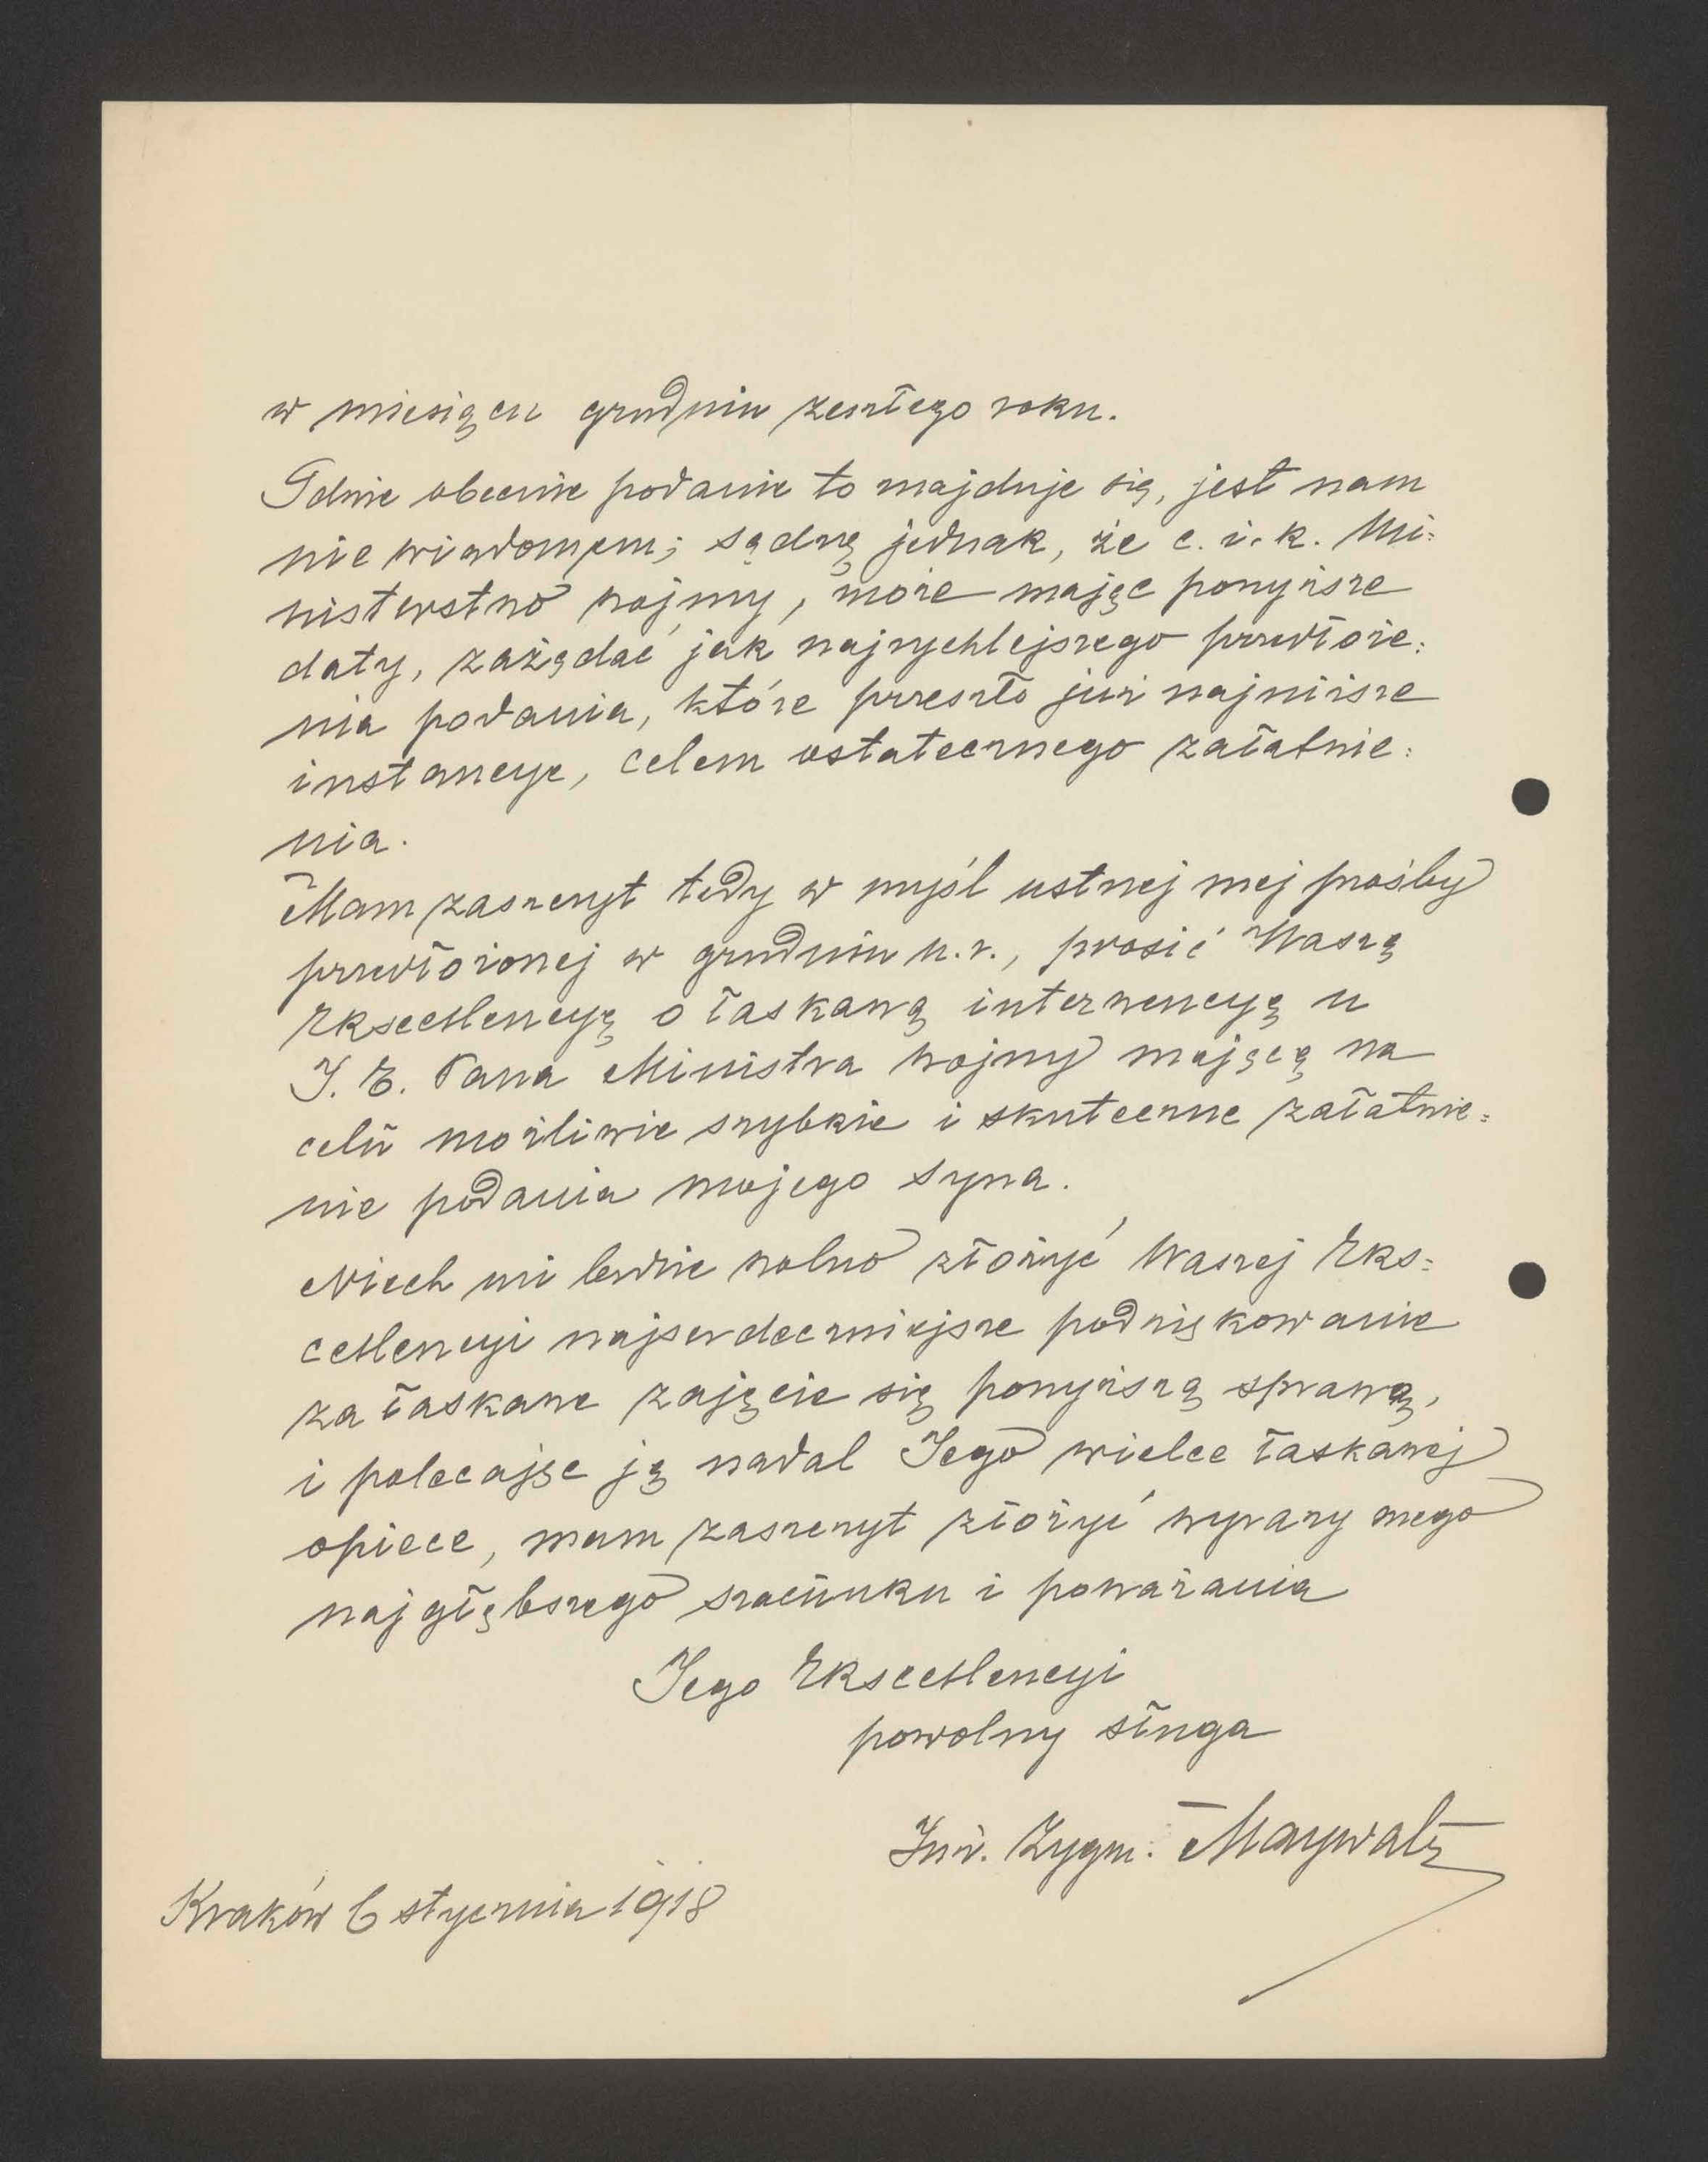 w miesiącu grudniu zeszłego roku.
Gdzie obecnie podanie to znajduje się, jest nam
nie wiadomem; sądzę jednak, że c. i. k. Mi=
nisterstwo wojny, może mając powyższe
daty, zażądać jak najrychlejszego przedłoże=
nia podania, które przeszło już najniższe
instancye, celem ostatecznego załatwie=
nia.
Mam zaszczyt tedy w myśl ustnej mej prośby
przedłożonej w grudniu u.r., prosić Waszą
Ekscellencyę o łaskawą interwencyę u
J. E. Pana Ministra wojny mającą na
celu możliwie szybkie i skuteczne załatwie=
nie podania mojego syna.
Niech mi będzie wolno złożyć Waszej Eks=
cellencyi najserdeczniejsze podziękowanie
za łaskawe zajęcie się powyższą sprawą,
i polecając ją nadal Jego wielce łaskawej
opiece, mam zaszczyt złożyć wyrazy mego
najgłębszego szacunku i poważania
Jego Ekscellencyi
powolny sługa
Inż. Zygm. Maywald
Kraków 6 stycznia 1918